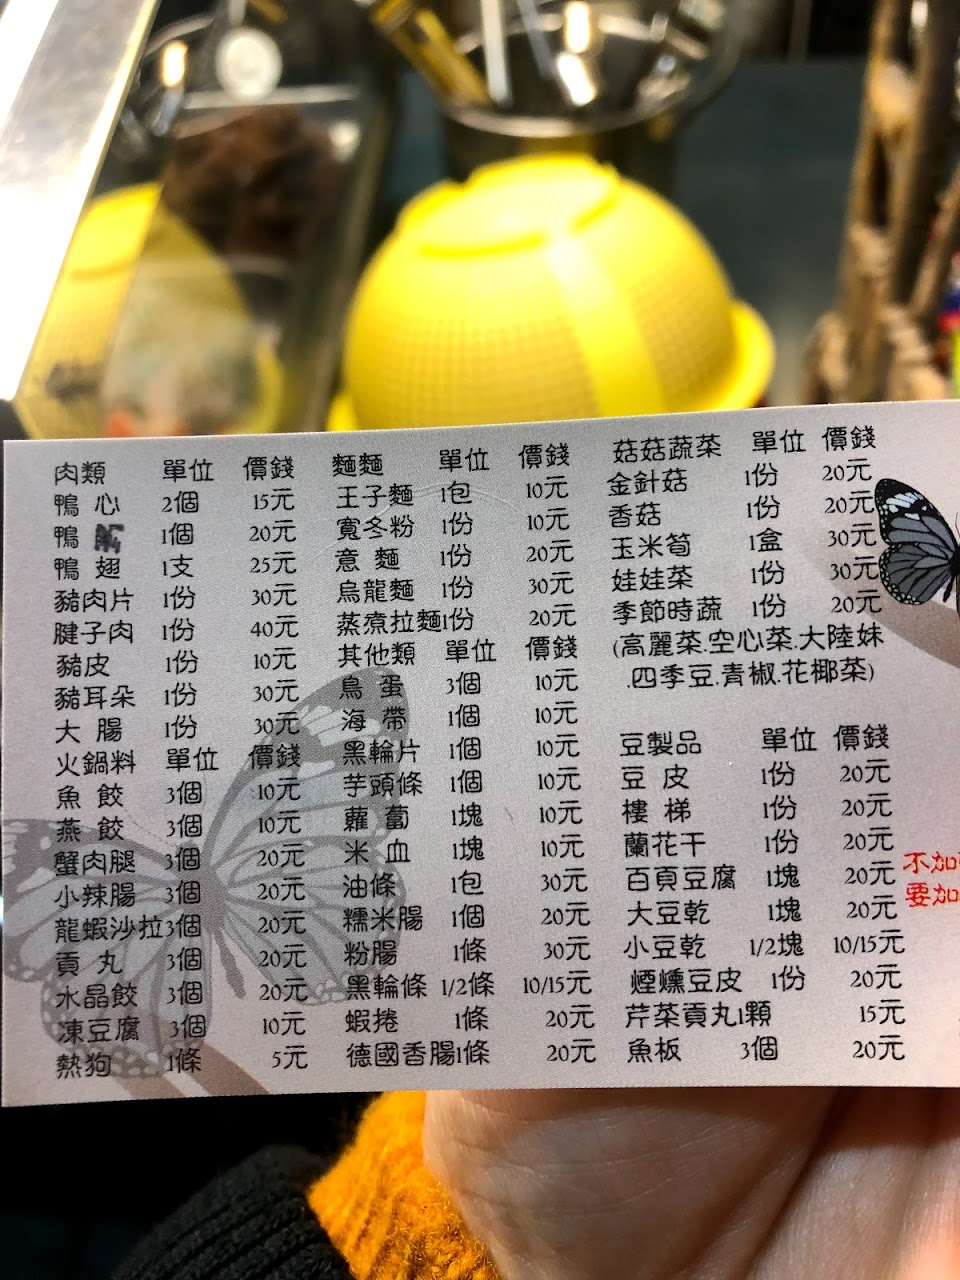 肉類 單位 價錢
鴨 心 2個 15元
鴨 1個 20元
鴨 翅 1支 25元
豬肉片 1份 30元
腱子肉 1份 40元
豬皮 1份 10元
豬耳朵 1份 30元
大 腸 1份 30元
火鍋料 單位 價錢
魚 餃 3個 10元
燕 餃 3個 10元
蟹肉腿 3個 20元
小辣腸 3個 20元
龍蝦沙拉3個 20元
貢 丸 3個 20元
水晶餃 3個 20元
凍豆腐 3個 10元
熱狗 1條 5元
麵麵 單位 價錢
王子麵 1包 10元
寬冬粉 1份 10元
意 麵 1份 20元
烏龍麵 1份 30元
蒸煮拉麵1份 20元
其他類 單位 價錢
鳥 蛋 3個 10元
海 帶 1個 10元
黑輪片 1個 10元
芋頭條 1個 10元
蘿 蔔 1塊 10元
米 血 1塊 10元
油條 1包 30元
糯米腸 1個 20元
粉腸 1條 30元
黑輪條 1/2條 10/15元
蝦捲 1條 20元
德國香腸1條 20元
菇菇蔬菜 單位 價錢
金針菇 1份 20元
香菇 1份 20元
玉米筍 1盒 30元
娃娃菜 1份 30元
季節時蔬 1份 20元
(高麗菜.空心菜.大陸妹
.四季豆.青椒.花椰菜)
豆製品 單位 價錢
豆 皮 1份 20元
樓 梯 1份 20元
蘭花干 1份 20元
百頁豆腐 1塊 20元
大豆乾 1塊 20元
小豆乾 1/2塊 10/15元
煙燻豆皮 1份 20元
芹菜貢丸1顆 15元
魚板 3個 20元
不加
要加